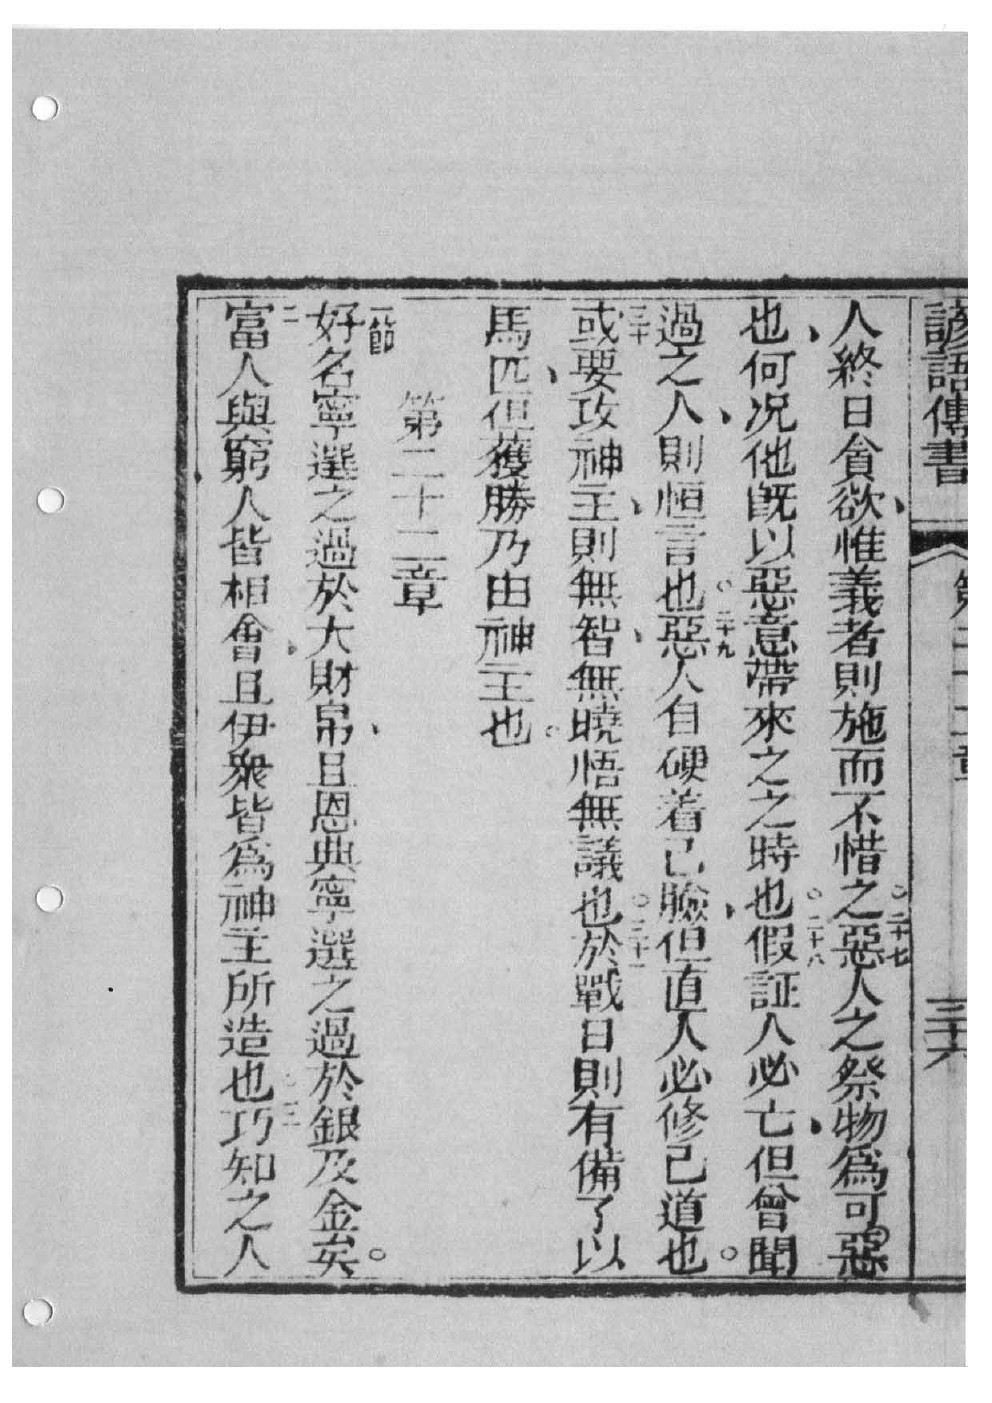 諺語傳書 第二十二章 三十六
人終日貪欲、惟義者則施而不惜之。二十七惡人之祭物爲可惡
也、何况他旣以惡意帶來之之時也。二十八假証人必亡、但曾聞
過之人、則恒言也。二十九惡人自硬着己臉、但直人必修己道也。
三十或要攻神主、則無智、無曉悟、無議也。三十一於戰日則有備了以
馬匹、但獲勝乃由神主也。
第二十二章
一節好名寧選之過於大財帛、且恩典寧選之過於銀及金矣。
二富人與窮人皆相會、且伊衆皆爲神主所造也。三巧知之人